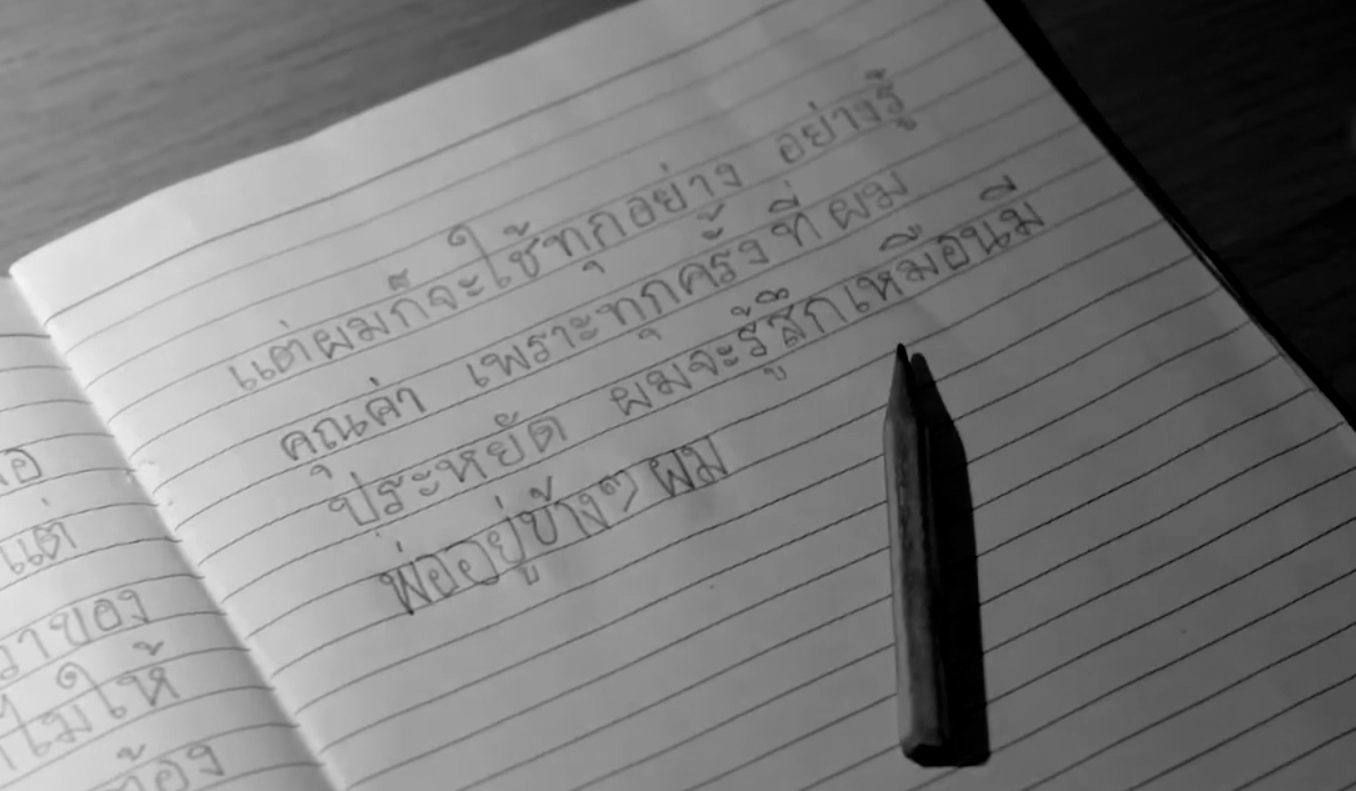 แต่ผมก็จะใช้ทุกอย่าง อย่างรู้
คุณค่า เพราะทุกครั้งที่ ผม
ประหยัด ผมจะรู้สึกเหมือนมี
พ่ออยู่ข้างๆ ผม
แต่
ของ
ไม่ให้
ต้อง